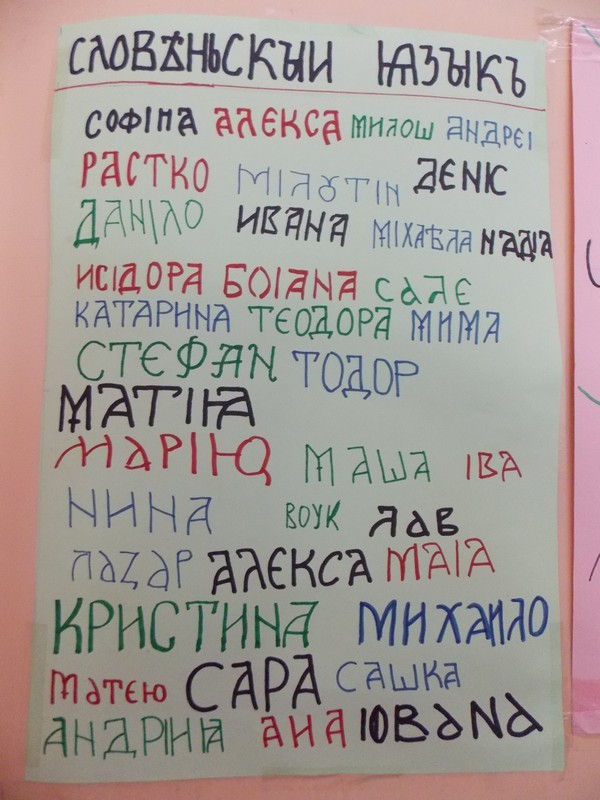 СЛОВѢНЬСКЫИ ѨЗЫКЪ
СОФІꙖ АЛЕКСА МИЛОШ АНДРЕІ
РАСТКО МІЛꙊТІН ДЕНІС
ДАНІЛО ИВАНА МІХАЪЛА НАДІА
ИСІДОРА БОІАНА САЛЕ
КАТАРИНА ТЕОДОРА МИМА
СТЕФАН ТОДОР
МАТІꙖ
МАРІЮ МАША ІВА
НИНА ВОУК ЛАВ
ЛАZАР АЛЕКСА МАІА
КРИСТИНА МИХАИЛО
МАТЕЮ САРА САШКА
АНДРІꙖНА АНА ІОВАNА